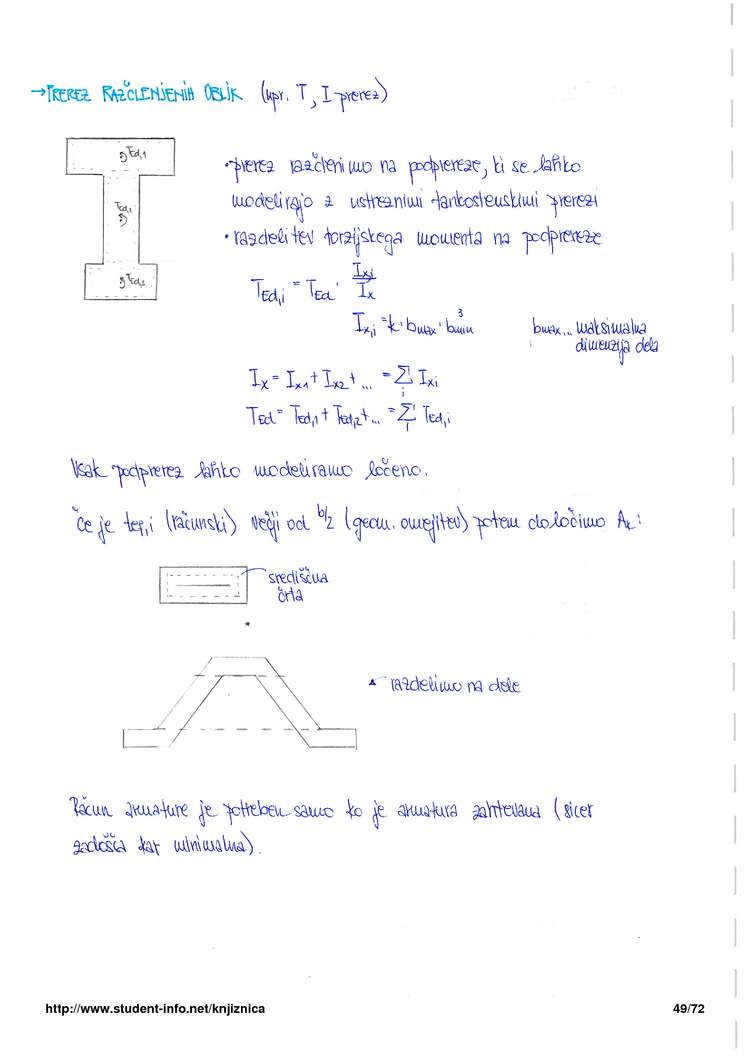 → PREREZ RAZČLENJENIH OBLIK (npr. T, I prerez)
TEd,1
TEd,2
TEd,3
• prerez razčlenimo na podprereze, ki se lahko
modelirajo z ustreznimi tankostenskimi prerezi
• razdelitev torzijskega momenta na podprereze
TEd,i = TEd · Ixi / Ix
Ix,i = k · bmax · bmin³
bmax... maksimalna
dimenzija dela
Ix = Ix1 + Ix2 + ... = Σi Ixi
TEd = TEd,1 + TEd,2 + ... = Σi TEd,i
Vsak podprerez lahko modeliramo ločeno.
Če je tef,i (računski) večji od b/2 (geom. omejitev) potem določimo Ak:
središčna
črta
razdelimo na dele
Račun armature je potreben samo ko je armatura zahtevana (sicer
zadošča kar minimalna).
http://www.student-info.net/knjiznica
49/72